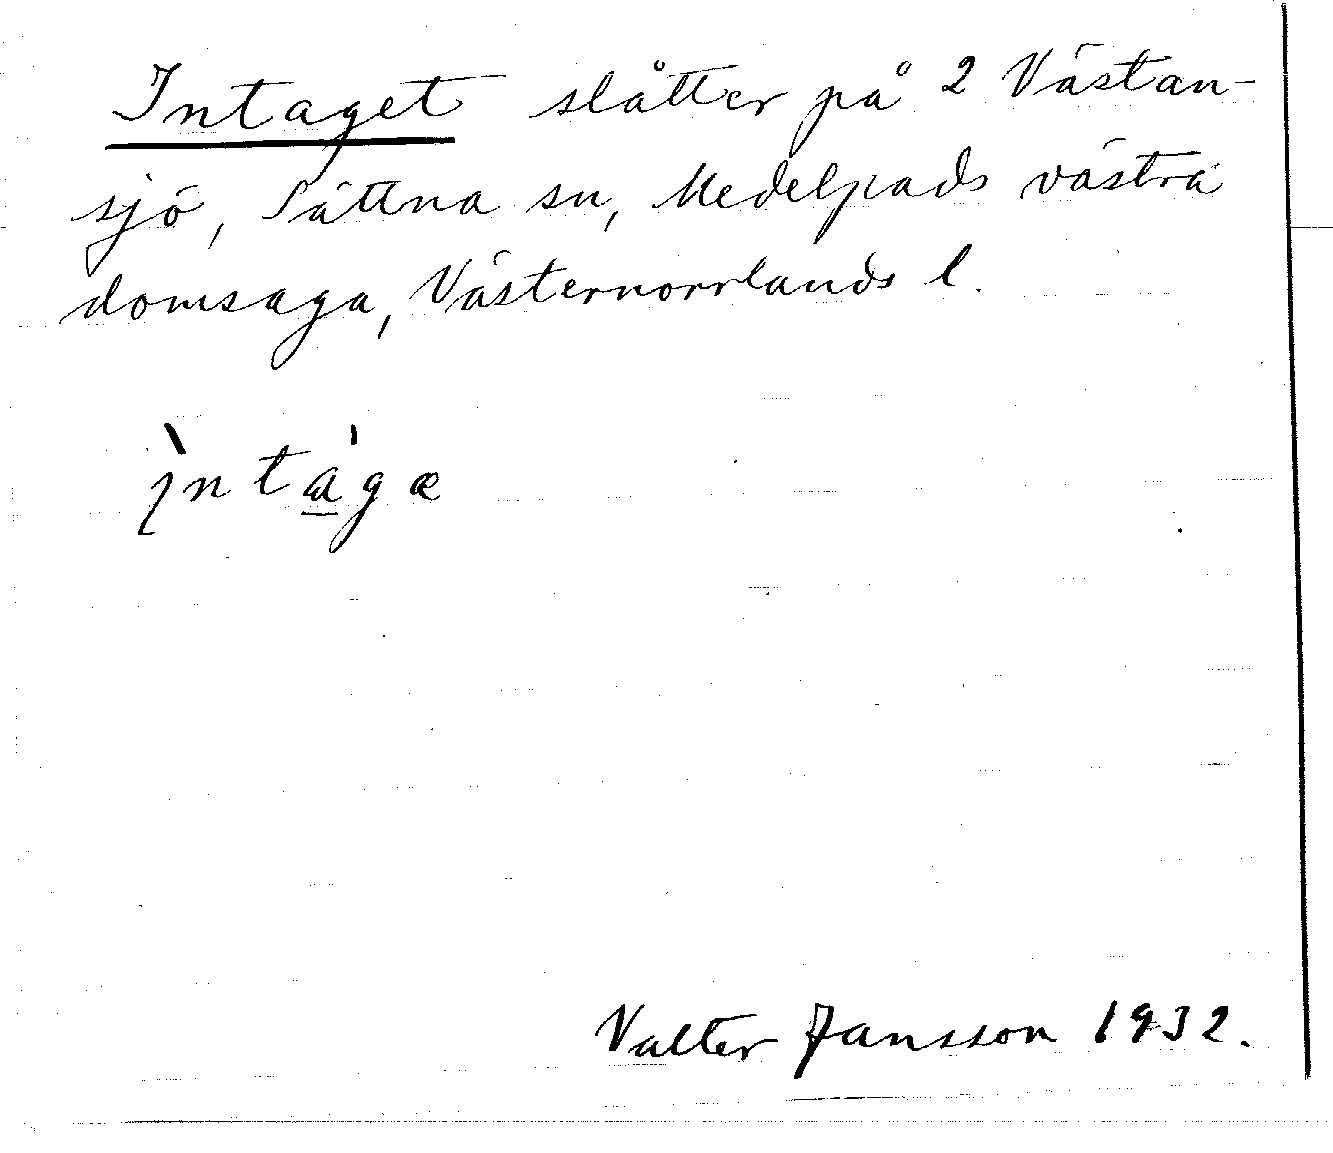 Intaget slåtter på 2 Västan-
sjö, Sättna sn, Medelpads västra
domsaga, Västernorrlands l.
ı̀nta̲̍gæ
Valter Jansson 1932.